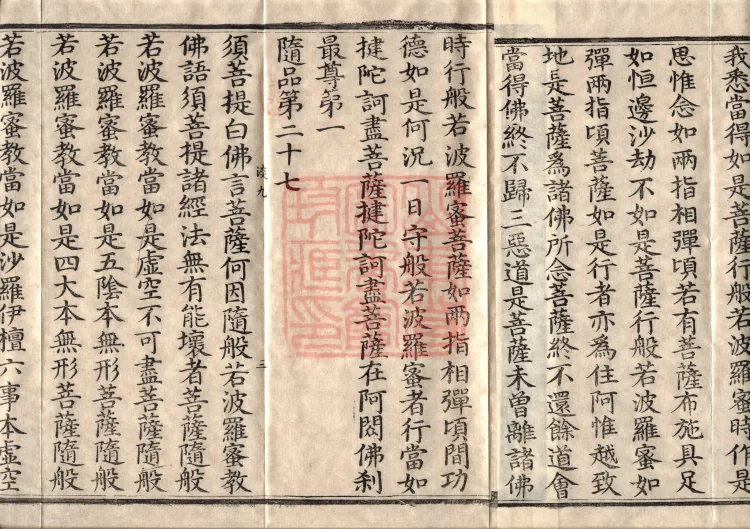 我悉當得如是菩薩行般若波羅蜜時作是
思惟念如兩指相彈頃若有菩薩布施具足
如恒邊沙劫不如是菩薩行般若波羅蜜如
彈兩指頃菩薩如是行者亦為住阿惟越致
地是菩薩為諸佛所念菩薩終不還餘道會
當得佛終不歸三惡道是菩薩未曾離諸佛
時行般若波羅蜜菩薩如兩指相彈頃間功
德如是何況一日守般若波羅蜜者行當如
揵陀訶盡菩薩揵陀訶盡菩薩在阿閦佛刹
最尊第一
隨品第二十七
須菩提白佛言菩薩何因隨般若波羅蜜教
佛語須菩提諸經法無有能壞者菩薩隨般
若波羅蜜教當如是虛空不可盡菩薩隨般
若波羅蜜教當如是五陰本無形菩薩隨般
若波羅蜜教當如是四大本無形菩薩隨般
若波羅蜜教當如是沙羅伊檀六事本虛空